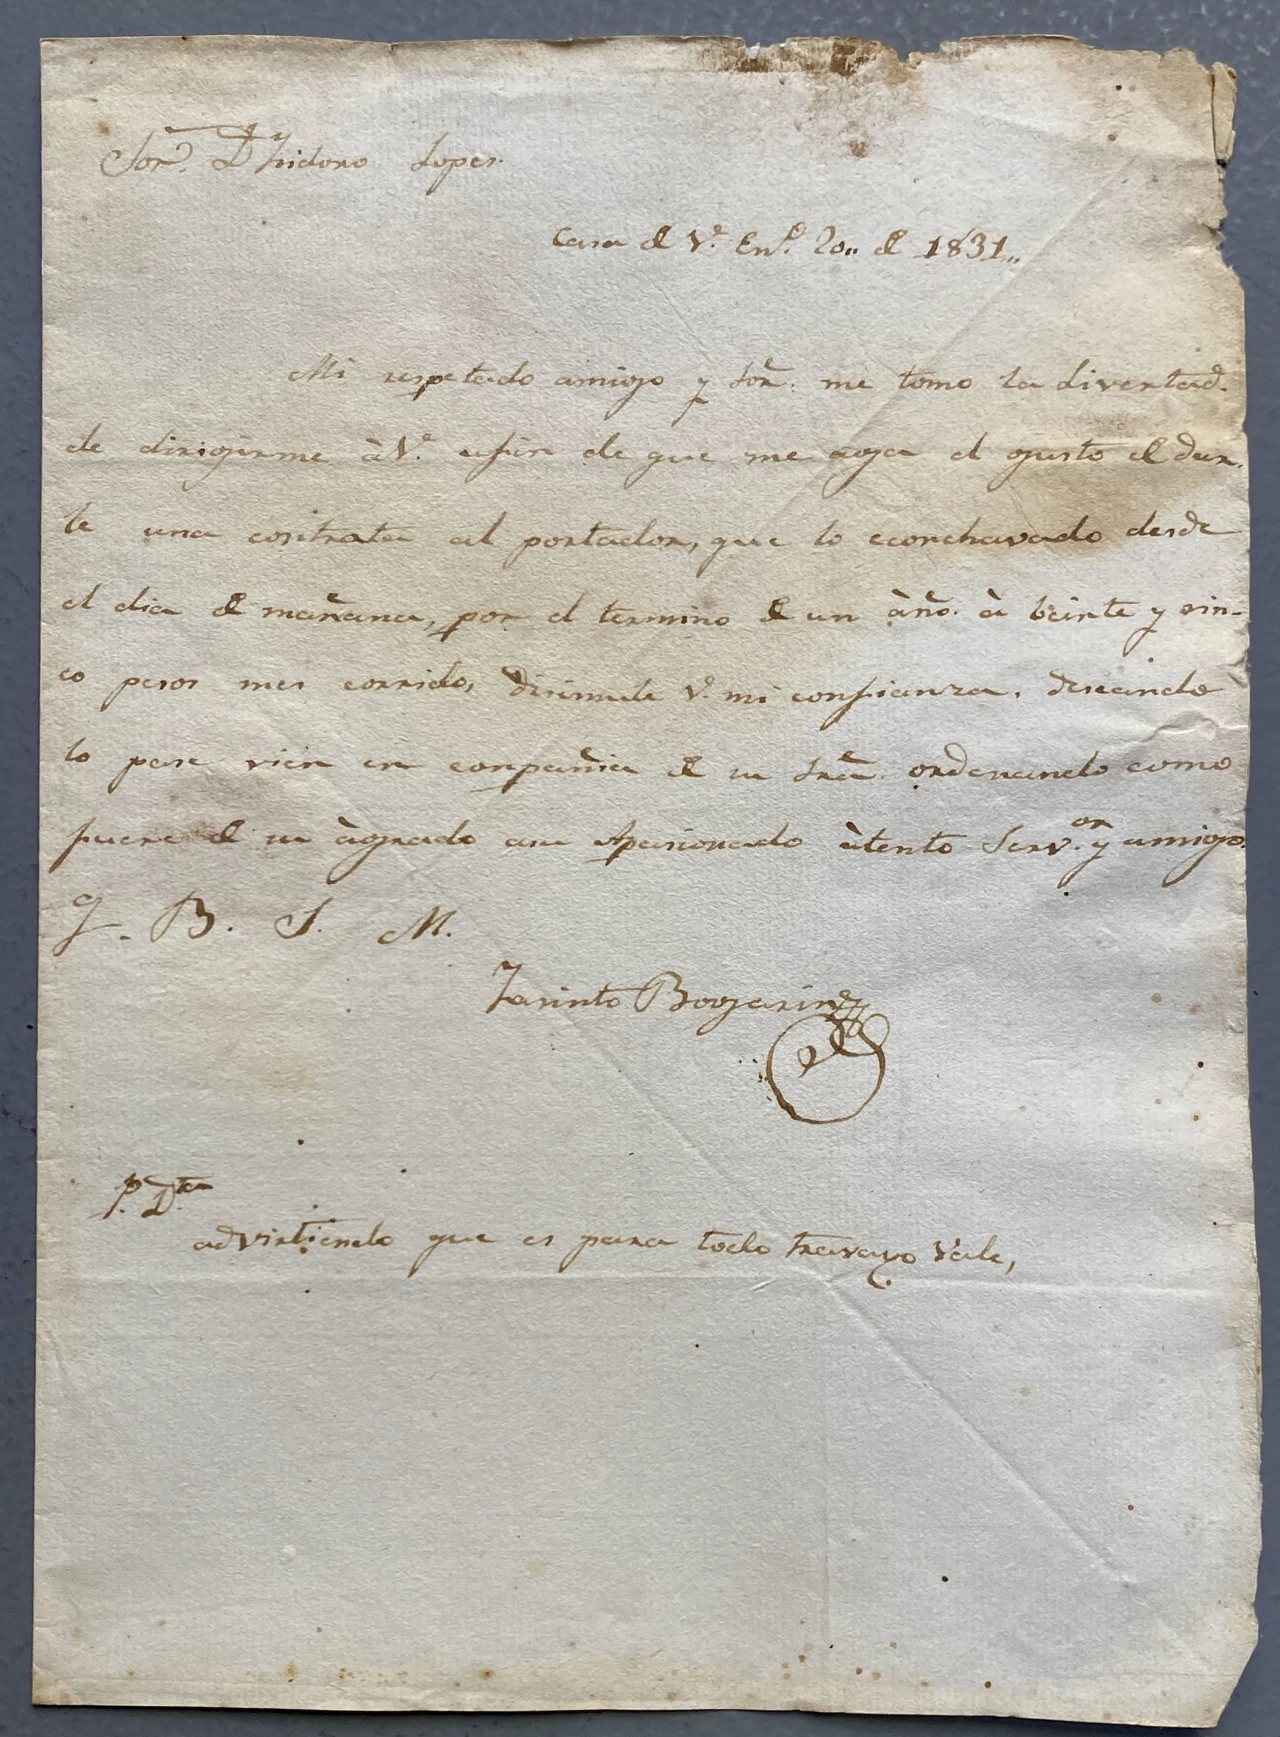 Sor. Dn Isidoro Lopes.
Casa de V.e En.o 20,, de 1831,,
Mi respetado amigo y Sor. me tomo la livertad.
de dirigirme à V.e afin de que me aga el gusto de dar-
le una contrata al portador, que lo econchavado desde
el dia de mañana, por el termino de un àño. à beinte y sin-
co pesos mes corrido, disimule V.e mi confianza, deseando
lo pase vien en conpañia de su Sra. ordenando como
fuere de su àgrado a su Apasionado àtento Serv.or y amigo.
q. B. S. M.
Jasinto
P. Dta
advirtiendo que es para todo travayo Vale,